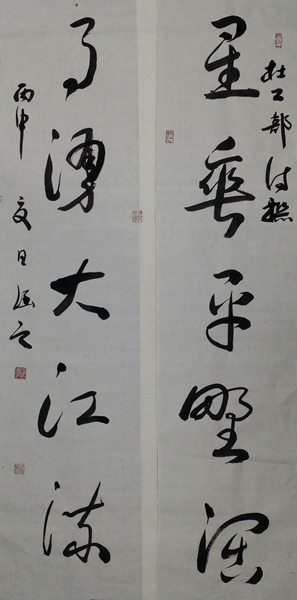 杜工部诗联
星垂平野阔
月涌大江流
丙申夏日